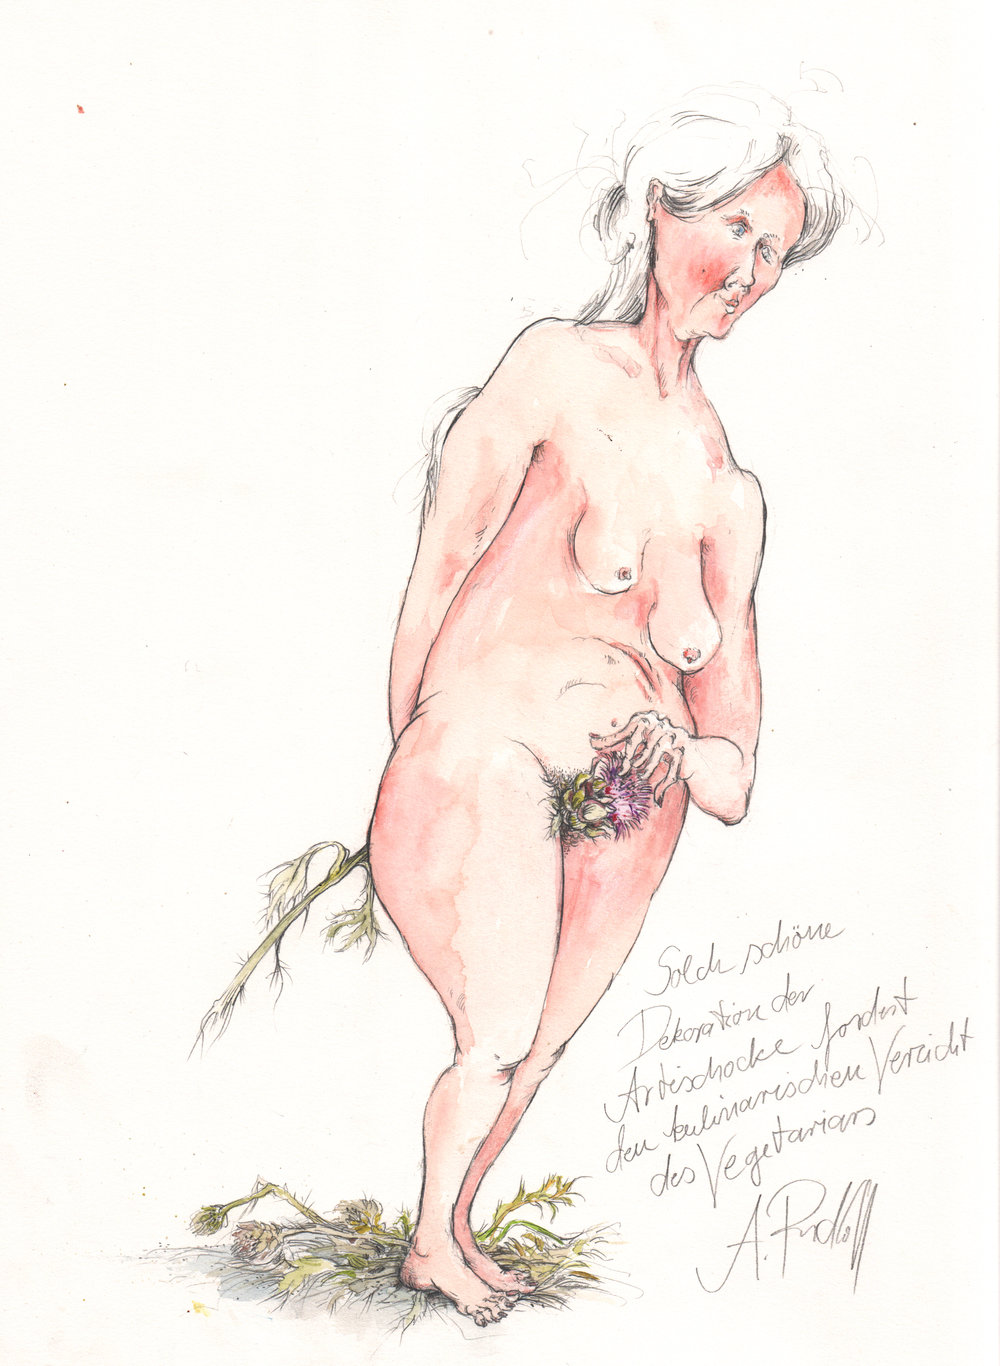 Solch schöne
Dekoration der
Artischocke fordert
den kulinarischen Verzicht
des Vegetarians
A. Rudloff